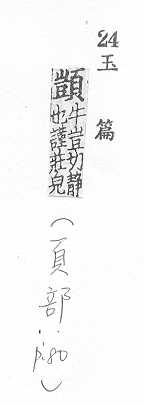 24
玉篇
顗牛豈切静
也謹莊皃
(頁部
p.80)